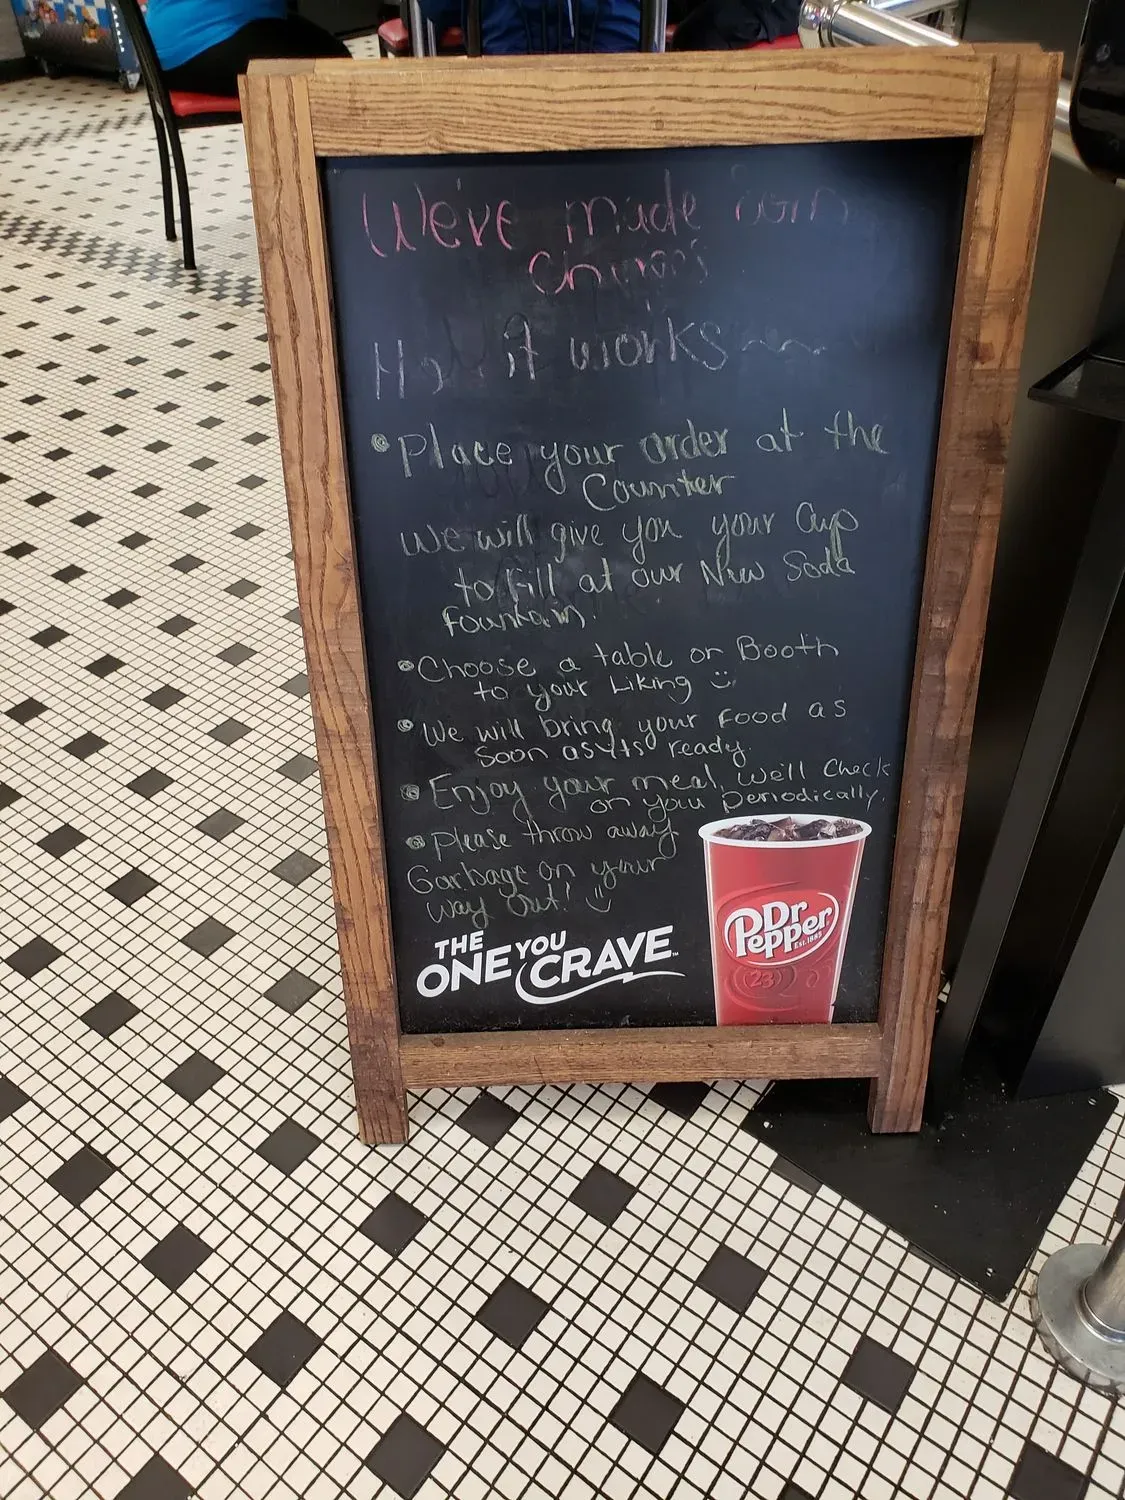 We've made
it works
• Place your order at the
Counter
We will give you your Cup
to Fill at our New Soda
Fountain.
• Choose a table or Booth
to your Liking
• We will bring your Food as
Soon as its ready.
• Enjoy your meal, we'll Check
on you Periodically.
• Please throw away
Garbage on your
way out!
THE
ONE YOU
CRAVE™
Dr
Pepper
EST. 1885
(23)